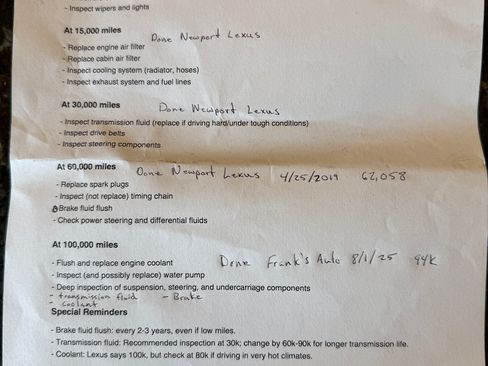 - Inspect wipers and lights
At 15,000 miles Done Newport Lexus
- Replace engine air filter
- Replace cabin air filter
- Inspect cooling system (radiator, hoses)
- Inspect exhaust system and fuel lines
At 30,000 miles Done Newport Lexus
- Inspect transmission fluid (replace if driving hard/under tough conditions)
- Inspect drive belts
- Inspect steering components
At 60,000 miles Done Newport Lexus 4/25/2019 62,058
- Replace spark plugs
- Inspect (not replace) timing chain
Brake fluid flush
- Check power steering and differential fluids
At 100,000 miles
- Flush and replace engine coolant Done Frank's Auto 8/1/25 99k
- Inspect (and possibly replace) water pump
- Deep inspection of suspension, steering, and undercarriage components
- transmission fluid - Brake
- coolant
Special Reminders
- Brake fluid flush: every 2-3 years, even if low miles.
- Transmission fluid: Recommended inspection at 30k; change by 60k-90k for longer transmission life.
- Coolant: Lexus says 100k, but check at 80k if driving in very hot climates.